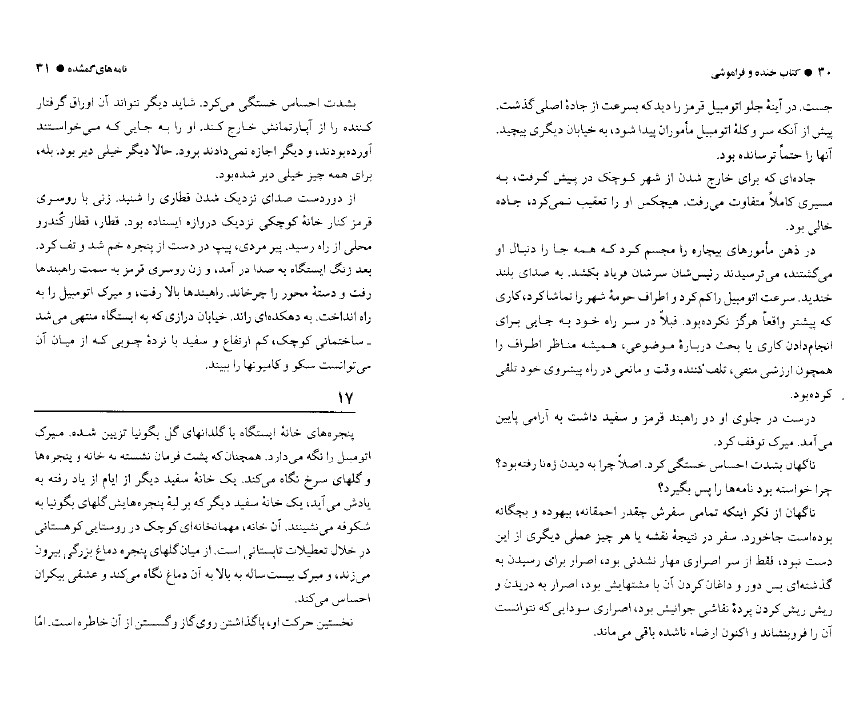 ۳۰ ● کتاب خنده و فراموشی
جست. در آینهٔ جلو اتومبیل قرمز را دید که بسرعت از جادهٔ اصلی گذشت.
پیش از آنکه سر و کلهٔ اتومبیل مأموران پیدا شود، به خیابان دیگری پیچید.
آنها را حتماً ترسانده بود.
جاده‌ای که برای خارج شدن از شهر کوچک در پیش گرفت، به
مسیری کاملاً متفاوت می‌رفت. هیچکس او را تعقیب نمی‌کرد، جاده
خالی بود.
در ذهن مأمورهای بیچاره را مجسم کرد که همه جا را دنبال او
می‌گشتند، می‌ترسیدند رئیس‌شان سرشان فریاد بکشد. به صدای بلند
خندید. سرعت اتومبیل را کم کرد و اطراف حومهٔ شهر را تماشا کرد، کاری
که پیشتر واقعاً هرگز نکرده‌بود. قبلاً در سر راه خود به جایی برای
انجام‌دادن کاری یا بحث دربارهٔ موضوعی، همیشه مناظر اطراف را
همچون ارزشی منفی، تلف‌کننده وقت و مانعی در راه پیشروی خود تلقی
کرده‌بود.
درست در جلوی او دو راهبند قرمز و سفید داشت به آرامی پایین
می‌آمد. میرک توقف کرد.
ناگهان بشدت احساس خستگی کرد. اصلاً چرا به دیدن ژه‌نا رفته‌بود؟
چرا خواسته بود نامه‌ها را پس بگیرد؟
ناگهان از فکر اینکه تمامی سفرش چقدر احمقانه، بیهوده و بچگانه
بوده‌است جاخورد. سفر در نتیجهٔ نقشه یا هر چیز عملی دیگری از این
دست نبود، فقط از سر اصراری مهار نشدنی بود، اصرار برای رسیدن به
گذشته‌ای بس دور و داغان کردن آن با مشتهایش بود، اصرار به دریدن و
ریش ریش کردن پردهٔ نقاشی جوانیش بود، اصراری سودایی که نتوانست
آن را فروبنشاند و اکنون ارضاء ناشده باقی می‌ماند.
نامه‌های گمشده ● ۳۱
بشدت احساس خستگی می‌کرد. شاید دیگر نتواند آن اوراق گرفتار
کننده را از آپارتمانش خارج کند. او را به جایی که می‌خواستند
آورده‌بودند، و دیگر اجازه نمی‌دادند برود. حالا دیگر خیلی دیر بود. بله،
برای همه چیز خیلی دیر شده‌بود.
از دوردست صدای نزدیک شدن قطاری را شنید. زنی با روسری
قرمز کنار خانهٔ کوچکی نزدیک دروازه ایستاده بود. قطار، قطار کُندرو
محلی از راه رسید. پیر مردی، پیپ در دست از پنجره خم شد و تف کرد.
بعد زنگ ایستگاه به صدا در آمد، و زن روسری قرمز به سمت راهبندها
رفت و دستهٔ محور را چرخاند. راهبندها بالا رفت، و میرک اتومبیل را به
راه انداخت. به دهکده‌ای راند. خیابان درازی که به ایستگاه منتهی می‌شد
ـ ساختمانی کوچک، کم ارتفاع و سفید با نردهٔ چوبی که از میان آن
می‌توانست سکو و کامیونها را ببیند.
۱۷
پنجره‌های خانهٔ ایستگاه با گلدانهای گل بگونیا تزیین شده. میرک
اتومبیل را نگه می‌دارد. همچنان‌که پشت فرمان نشسته به خانه و پنجره‌ها
و گلهای سرخ نگاه می‌کند. یک خانهٔ سفید دیگر از ایام از یاد رفته به
یادش می‌آید، یک خانهٔ سفید دیگر که بر لبهٔ پنجره‌هایش گلهای بگونیا به
شکوفه می‌نشینند. آن خانه، مهمانخانه‌ای کوچک در روستایی کوهستانی
در خلال تعطیلات تابستانی است. از میان گلهای پنجره دماغ بزرگی بیرون
می‌زند، و میرک بیست‌ساله به بالا به آن دماغ نگاه می‌کند و عشقی بیکران
احساس می‌کند.
نخستین حرکت او، پاگذاشتن روی گاز و گسستن از آن خاطره است. امّا